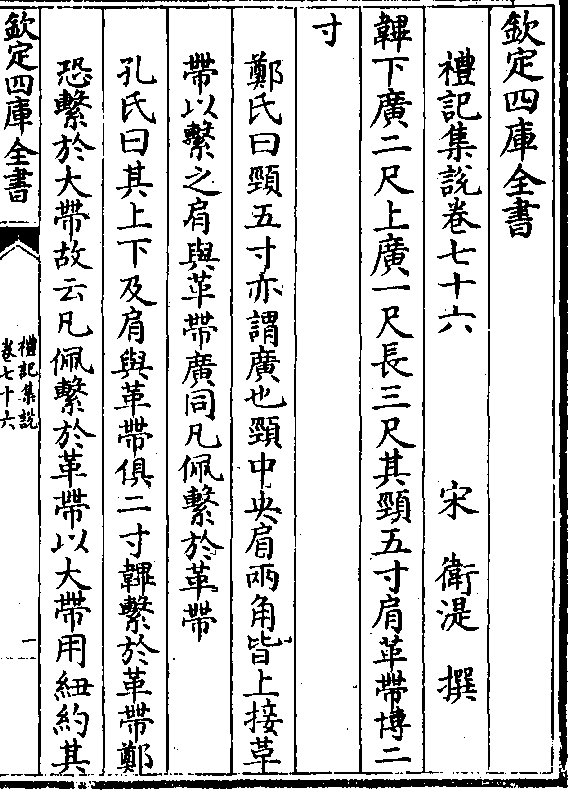 欽定四庫全書
禮記集說卷七十六　宋　衛湜　撰
韠下廣二尺上廣一尺長三尺其頸五寸肩革帶博二
寸
鄭氏曰頸五寸亦謂廣也頸中央肩兩角皆上接革
帶以繫之肩與革帶廣同凡佩繫於革帶
孔氏曰其上下及肩與革帶俱二寸韠繫於革帶鄭
恐繫於大帶故云凡佩繫於革帶以大帶用紐約其
欽定四庫全書
禮記集說
卷七十六
一